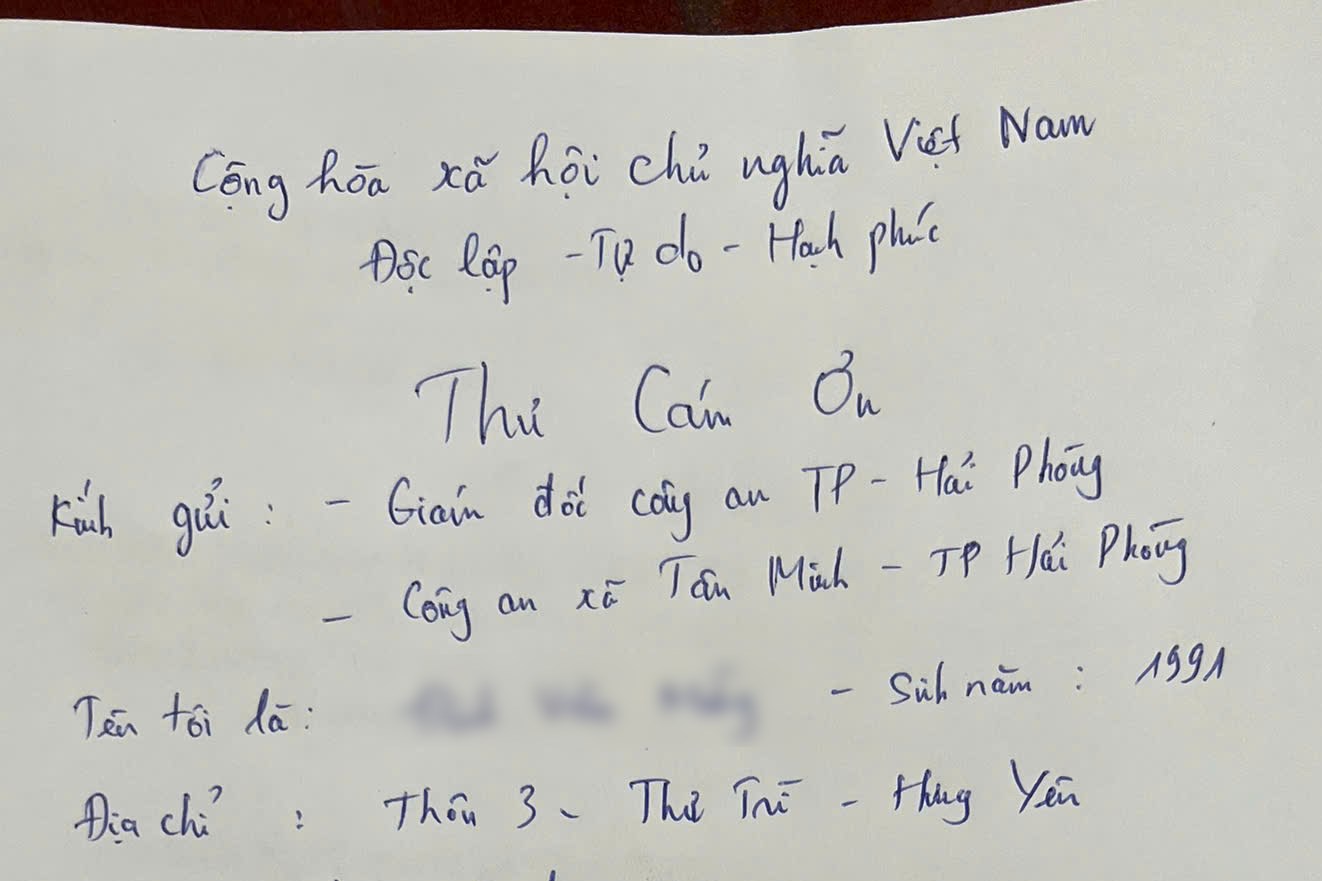 Cộng hòa xã hội chủ nghĩa Việt Nam
Độc lập - Tự do - Hạnh phúc
Thư Cám Ơn
Kính gửi : - Giám đốc công an TP - Hải Phòng
- Công an xã Tân Minh - TP Hải Phòng
Tên tôi là : - Sinh năm : 1991
Địa chỉ : Thôn 3 - Thư Trì - Hưng Yên